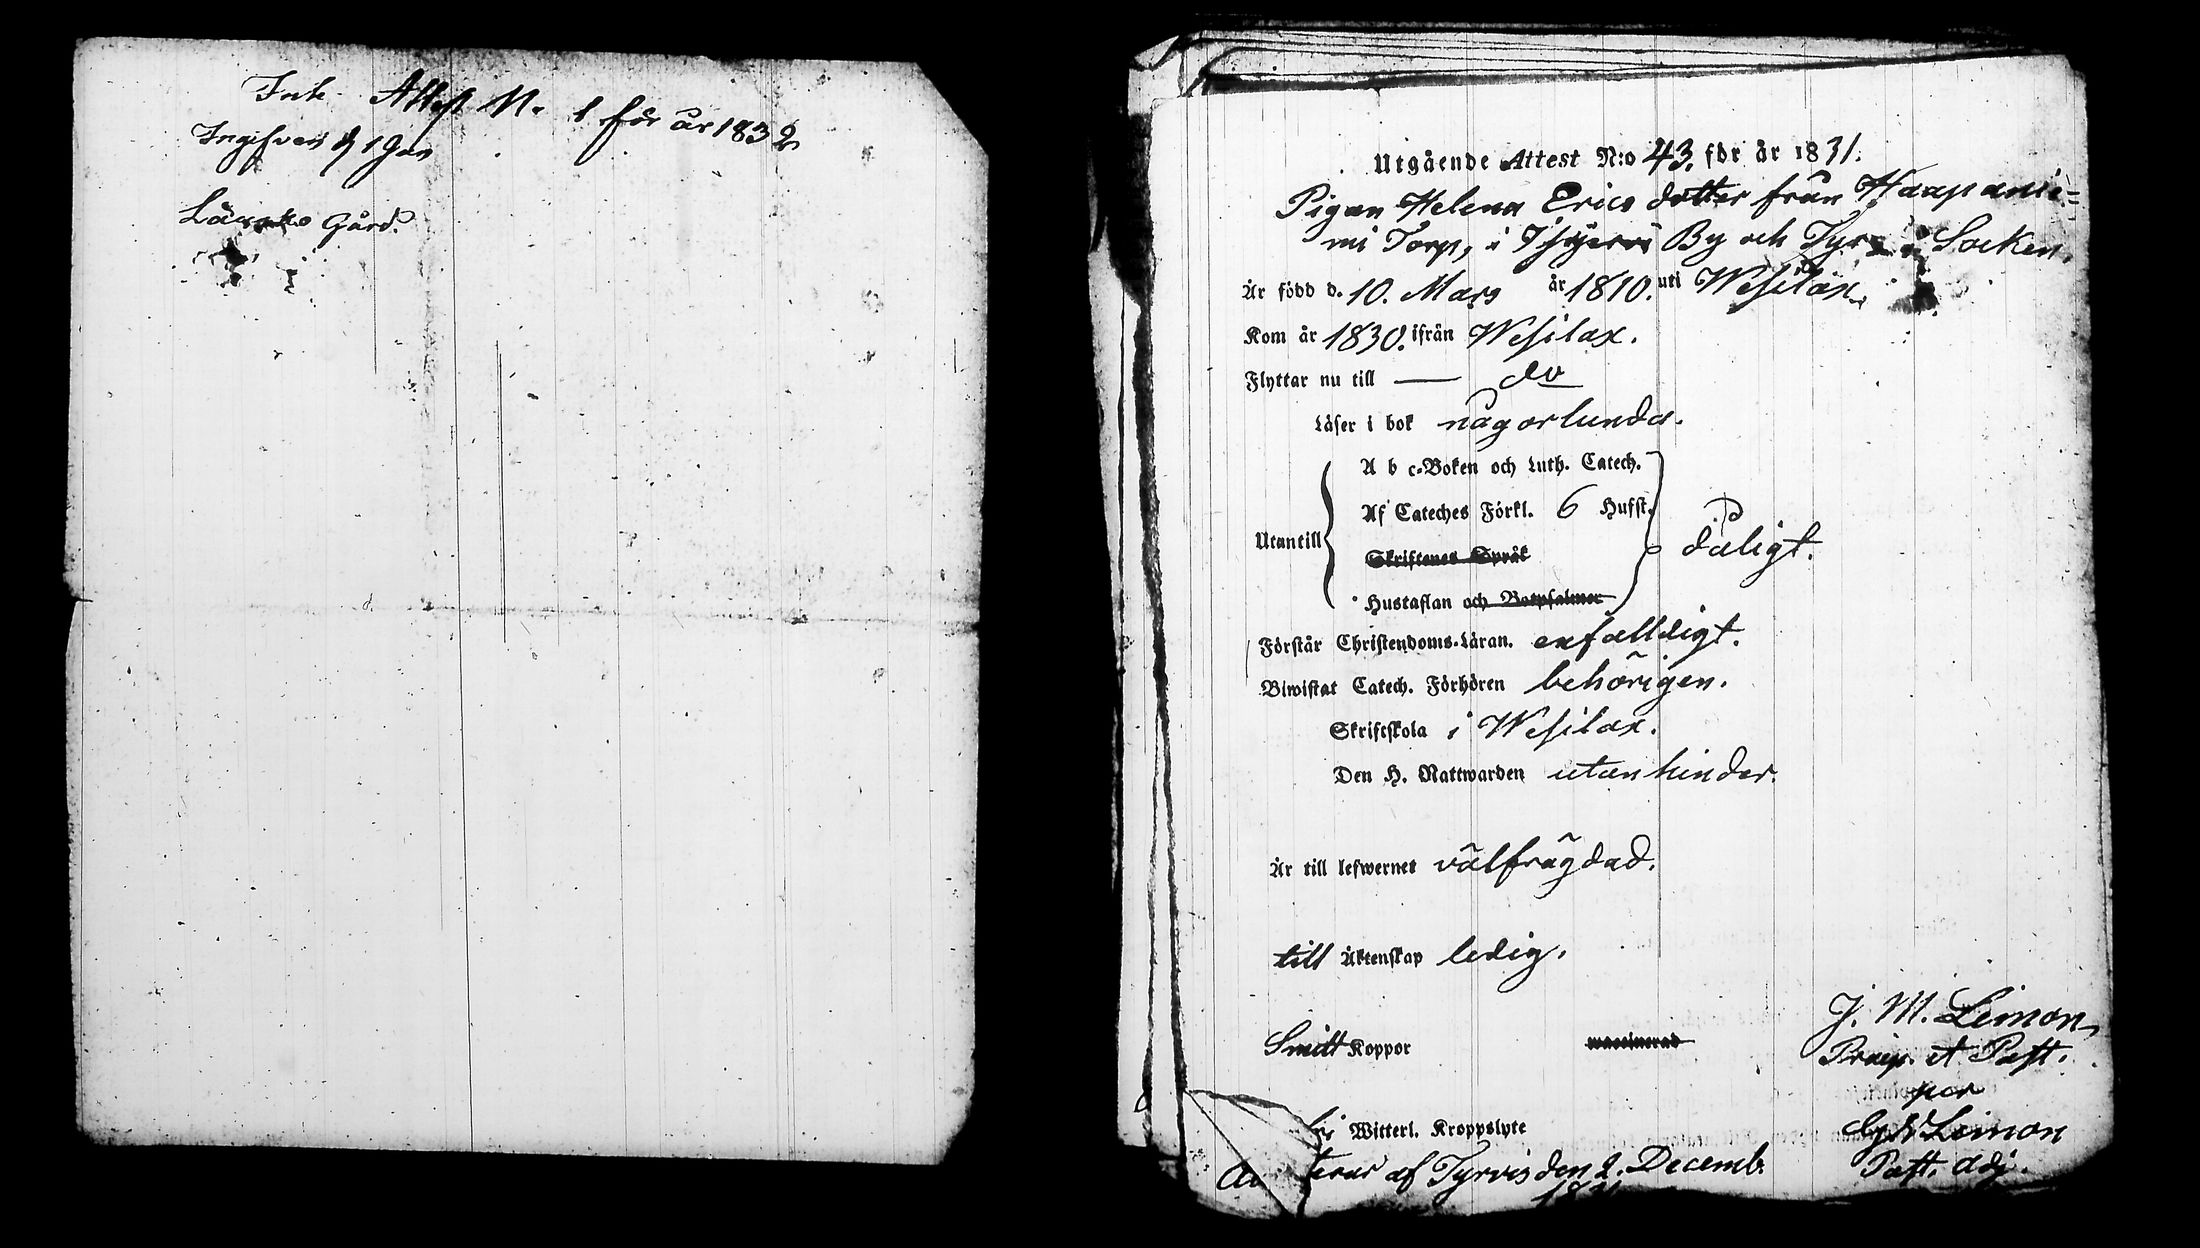 Ink. Attest N. 1 för år 1832
Ingifven d 1 Jan
Gård.
Utgående Attest N:o 43. för år 1831.
Pigan Helena Erics dotter från Haapanie=
mi Torp, i By och Tyrvis Socken.
Är född d. 10. Mars år 1810. uti Wesilax.
Kom år 1830. ifrån Wesilax.
Flyttar nu till — do
Läser i bok någorlunda.
A b c-Boken och Luth. Catech.
Af Cateches Förkl. 6 Hufst.
Utantill dåligt.
Skriftenes Språk
Hustaflan och Botpsalmer
Förstår Christendoms-Läran. enfalldigt.
Biwistat Catech. Förhören behörigen.
Skriftskola i Wesilax.
Den H. Nattwarden utan hinder.
Är till lefwernet välfrägdad.
till Äktenskap ledig.
Smitt Koppor waccinerad
J. M. Limon
Praep. et Past.
per
Limon
Past. adj.
Witterl. Kroppslyte
af Tyrvis den 2. Decemb.
1831